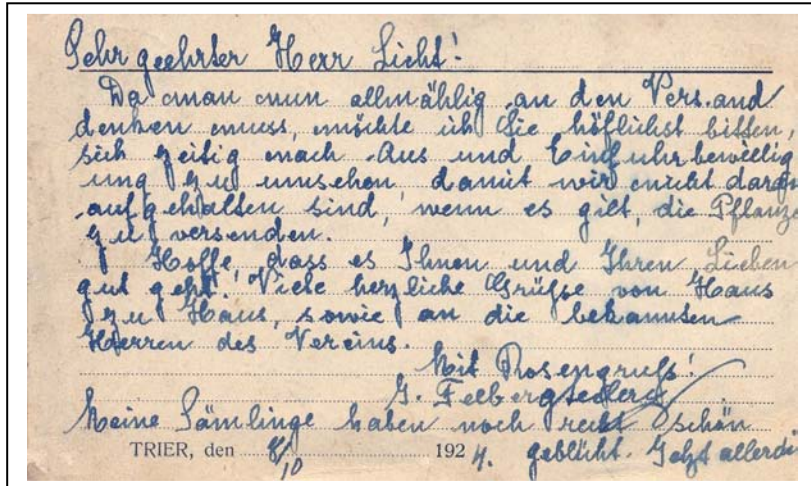 Sehr geehrter Herr Licht!
Da man nun allmählig an den Versand
denken muss, möchte ich Sie höflichst bitten,
sich zeitig nach Aus und Einfuhrbewillig
ung zu umsehen, damit wir nicht daran
aufgehalten sind, wenn es gilt, die Pflanze
zu versenden.
Hoffe, dass es Ihnen und Ihren Lieben
gut geht! Viele herzliche Grüsse von Haus
zu Haus, sowie an die bekannten
Herren des Vereins.
Mit Rosengruss!
J. Felberg
Meine Sämlinge haben noch recht schön
TRIER, den 8/10 1924. geblüht. Jetzt allerdi